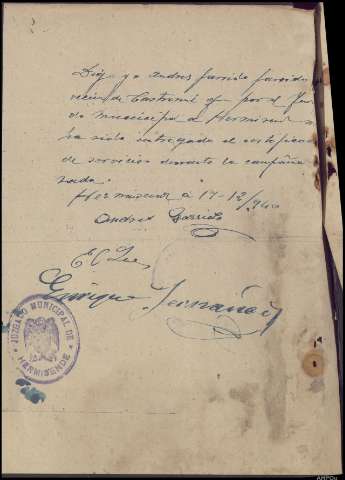 Digo yo Andres Garrido Garrido
vecino de Castromil que por el Juz
do municipal de Hermisend
ha sido entregado el certificado
de servicios durante la campaña
sada.
Hermisende a 17-12/940
Andres Garrido
El Juez,
Enrique Fernández
JUZGADO MUNICIPAL DE
HERMISENDE